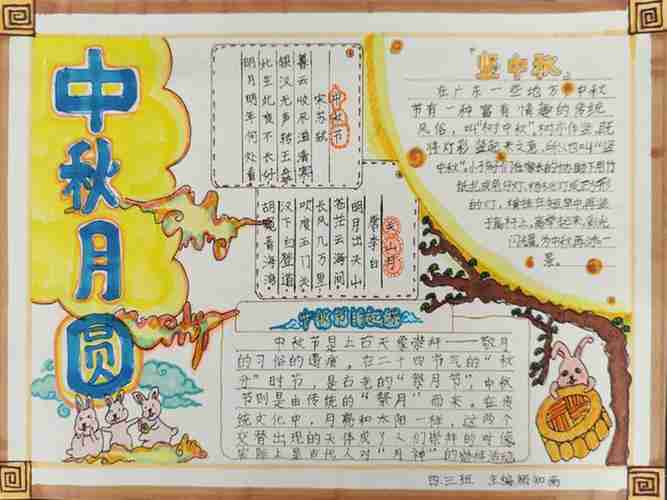 中秋月圆
中秋节
宋苏轼
暮云收尽溢清寒
银汉无声转玉盘
此生此夜不长好
明月明年何处看
关山月
唐李白
明月出天山
苍茫云海间
长风几万里
吹度玉门关
汉下白登道
胡窥青海湾
"竖中秋"
在广东一些地方,中秋
节有一种富有情趣的传统
风俗,叫"树中秋"。树亦作竖,既
将灯彩竖起来之意,所以也叫"竖
中秋"。小孩们在家长的协助下用竹
纸扎成兔仔灯、杨桃灯或
的灯,横挂在短竿中再竖
于高杆上,高举起来,彩光
闪耀,为中秋再添一
景。
中秋节是上古天象崇拜——敬月
的习俗的遗痕。在二十四节气的"秋
分"时节,是古老的"祭月节"。中秋
节则是由传统的"祭月"而来。在传
统文化中,月亮和太阳一样,这两个
交替出现的天体成了人们崇拜的对象
实际上是古代人对"月神"的崇拜活动
四.三班 主编